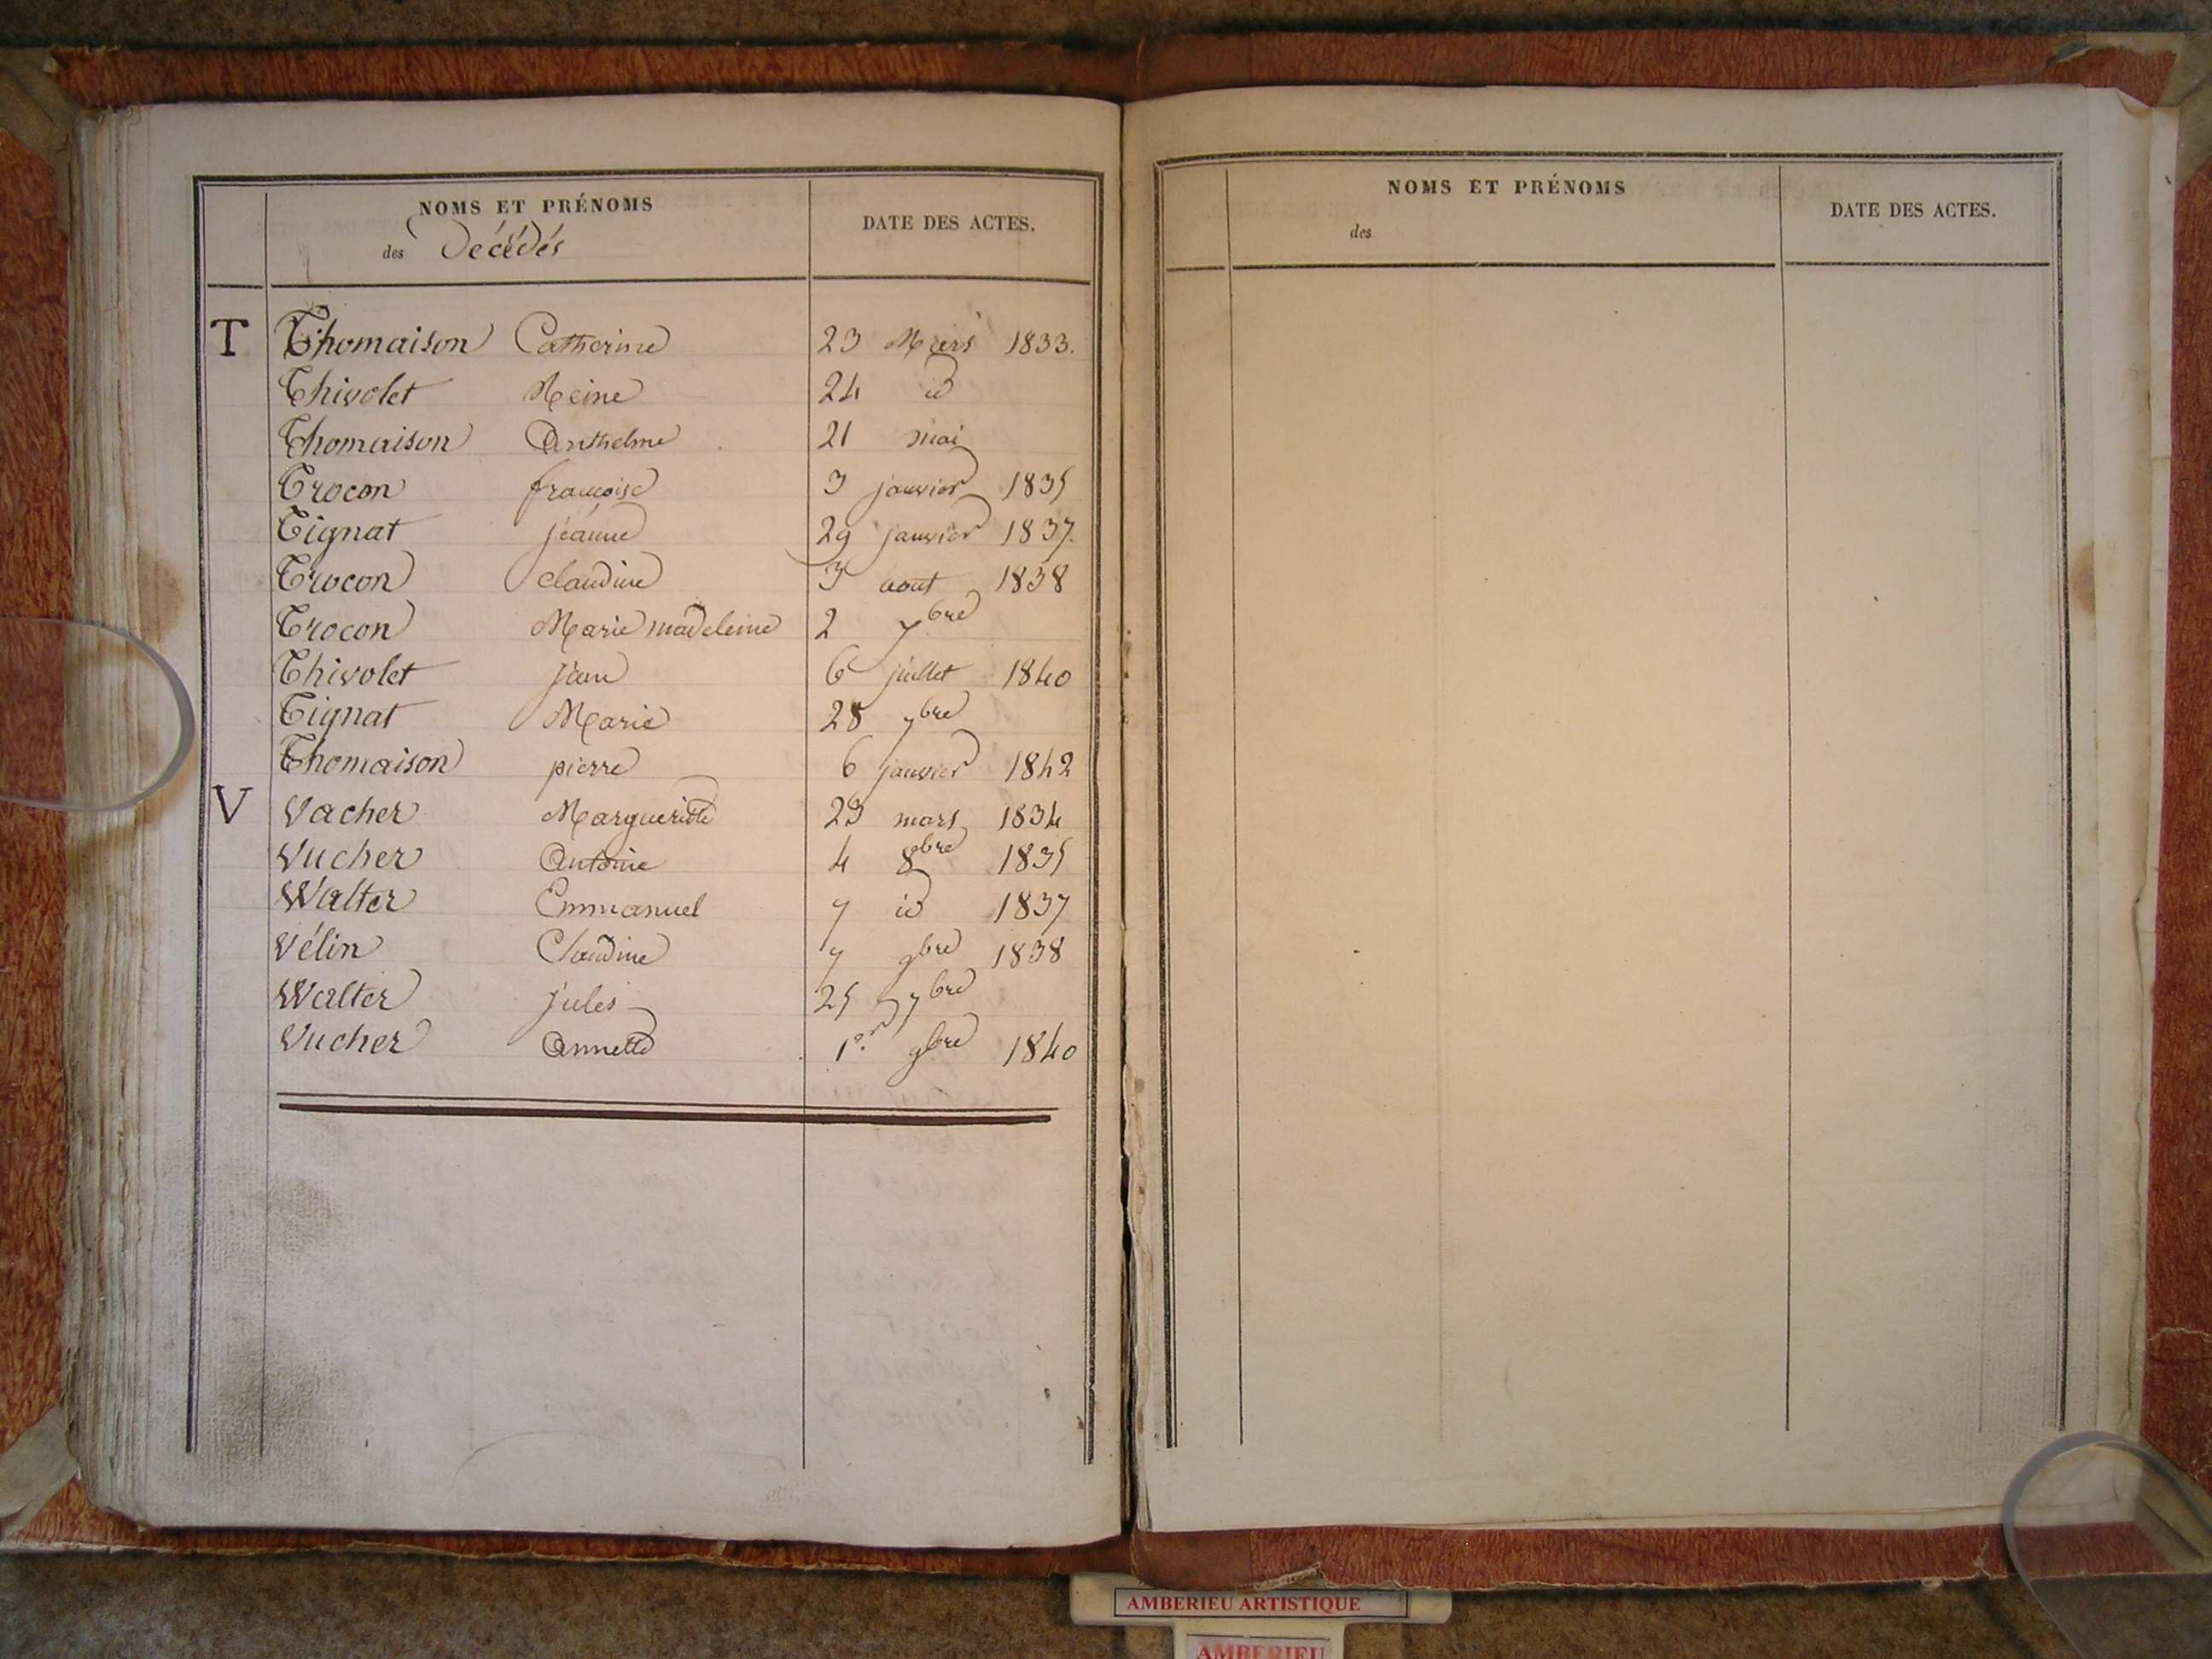 NOMS ET PRÉNOMS
des Décédés
DATE DES ACTES.
T Thomaison Catherine 23 Mars 1833.
Thivolet Reine 24 id
Thomaison Anthelme 21 mai
Trocon françoise 3 janvier 1835
Tignat jeanne 29 janvier 1837.
Trocon Claudine 3 aout 1838
Trocon Marie madeleine 2 7bre
Thivolet jean 6 juillet 1840
Tignat Marie 28 7bre
Thomaison pierre 6 janvier 1842
V Vacher Margueritte 23 mars 1834
Vucher Antoine 4 8bre 1835
Walter Emmanuel 7 id 1837
Vélin Claudine 7 9bre 1838
Walter jules 25 7bre
Vucher Annette 1er 9bre 1840
NOMS ET PRÉNOMS
des
DATE DES ACTES.
AMBERIEU ARTISTIQUE
AMBERIEU